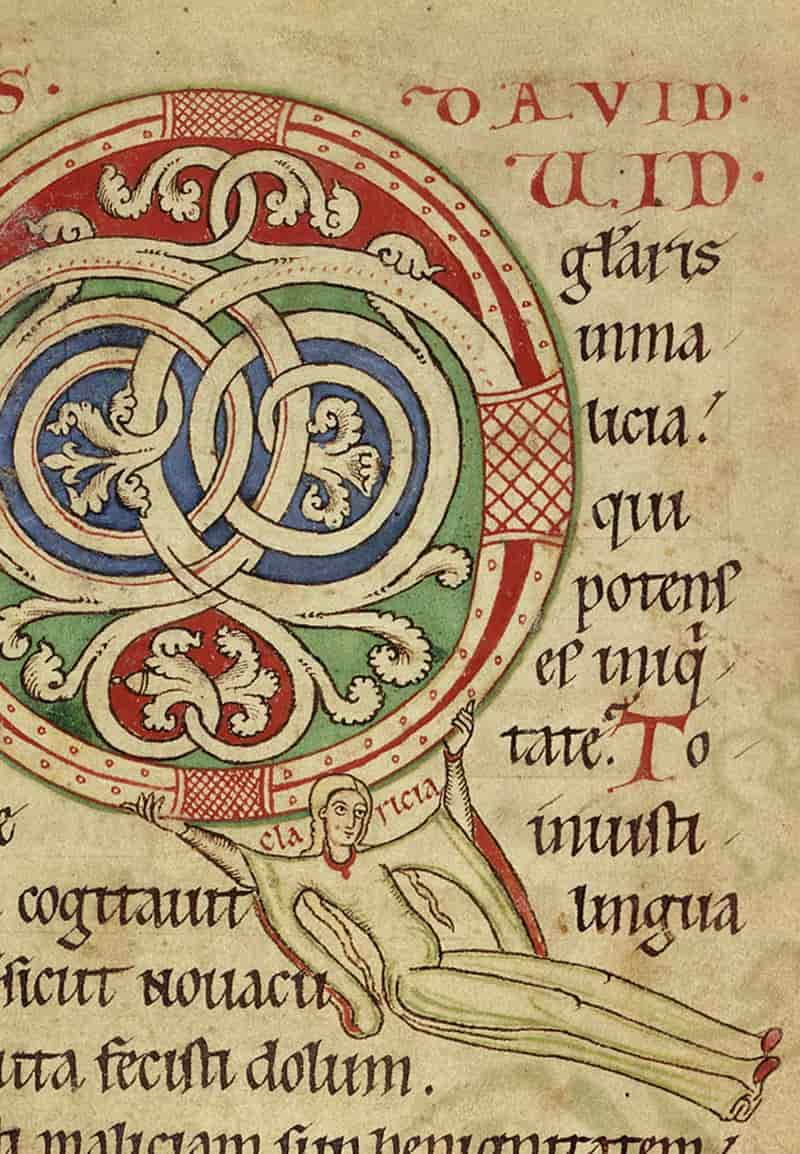 S.
DAVID.
UID.
głaris
inma
licia?
qui
potens
es iniq̇
tate? To
iniusti
lingua
cla ricia
cogitauit
sicut nouacu
fecisti dolum.
maliciam sup benignitatem